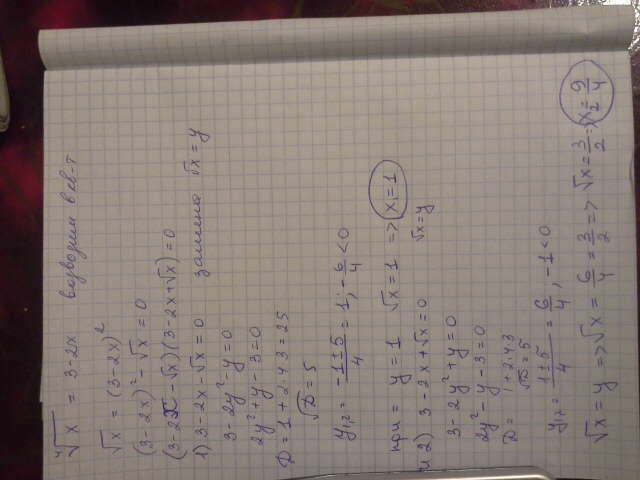 ⁴√x = 3-2x возводим в кв-т
√x = (3-2x)²
(3-2x)² - √x = 0
(3-2x - √x)(3-2x+√x) = 0
1) 3-2x-√x = 0 замена √x = y
3-2y²-y=0
2y²+y-3=0
D = 1+2·4·3=25
√D = 5
y₁,₂ = -1±5/4 = 1; -6/4 < 0
при = y=1 √x = 1 => x₁=1
и 2) 3-2x+√x=0 √x=y
3-2y²+y=0
2y²-y-3=0
D = 1+2·4·3
√D=5
y₁,₂ = 1±5/4 = 6/4, -1<0
√x = y => √x = 6/4 = 3/2 => √x = 3/2 => x₂ = 9/4